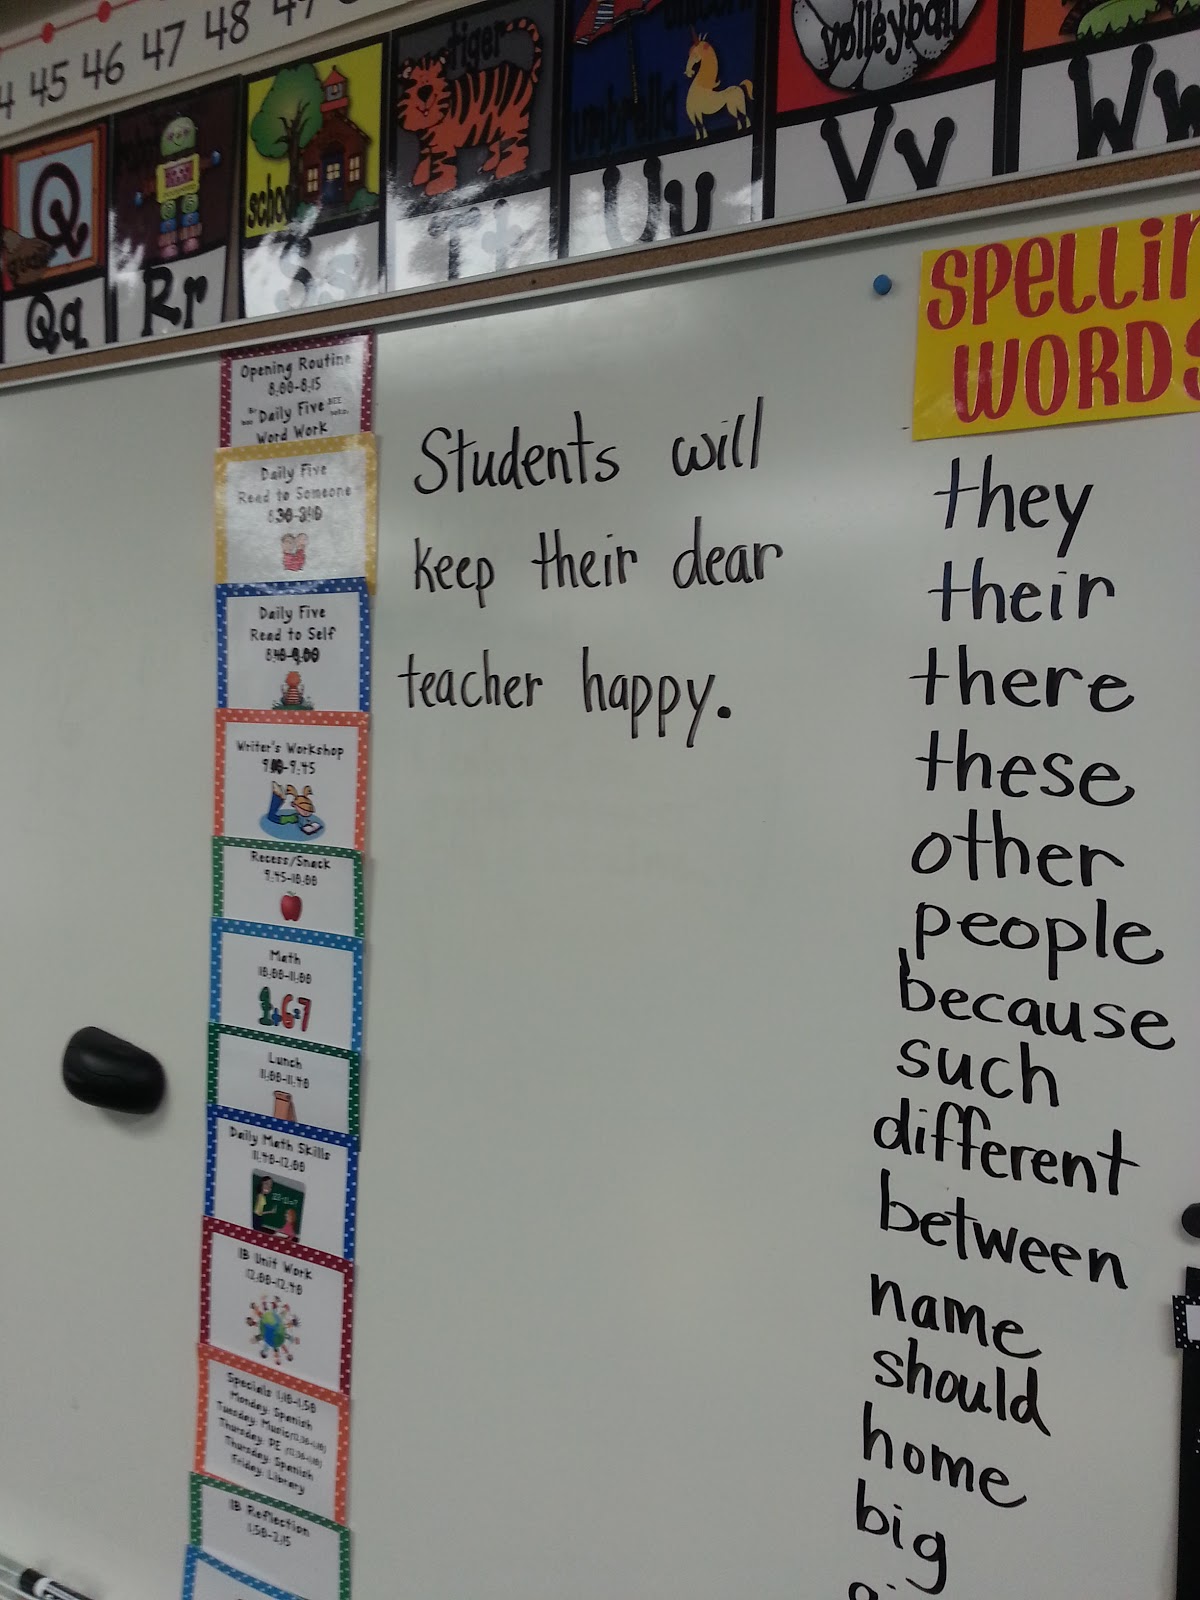 45 46 47 48
tiger
umbrella
volleyball
school
Qq Rr Ss Tt Uu Vv Ww
SPELLIN
WORDS
Opening Routine
8:00-8:15
Daily Five
Word Work
Daily Five
Read to Someone
Daily Five
Read to Self
8:40-9:00
Writer's Workshop
9:00-9:45
Recess/Snack
9:45-10:00
Math
10:00-11:00
1+6=7
Lunch
11:00-11:40
Daily Math Skills
11:40-12:00
IB Unit Work
12:00-12:40
Specials 1:10-1:50
Monday: Spanish
Tuesday: Music
Thursday: PE
Thursday: Spanish
Friday: Library
IB Reflection
1:50-2:15
Students will
keep their dear
teacher happy.
they
their
there
these
other
people
because
such
different
between
name
should
home
big